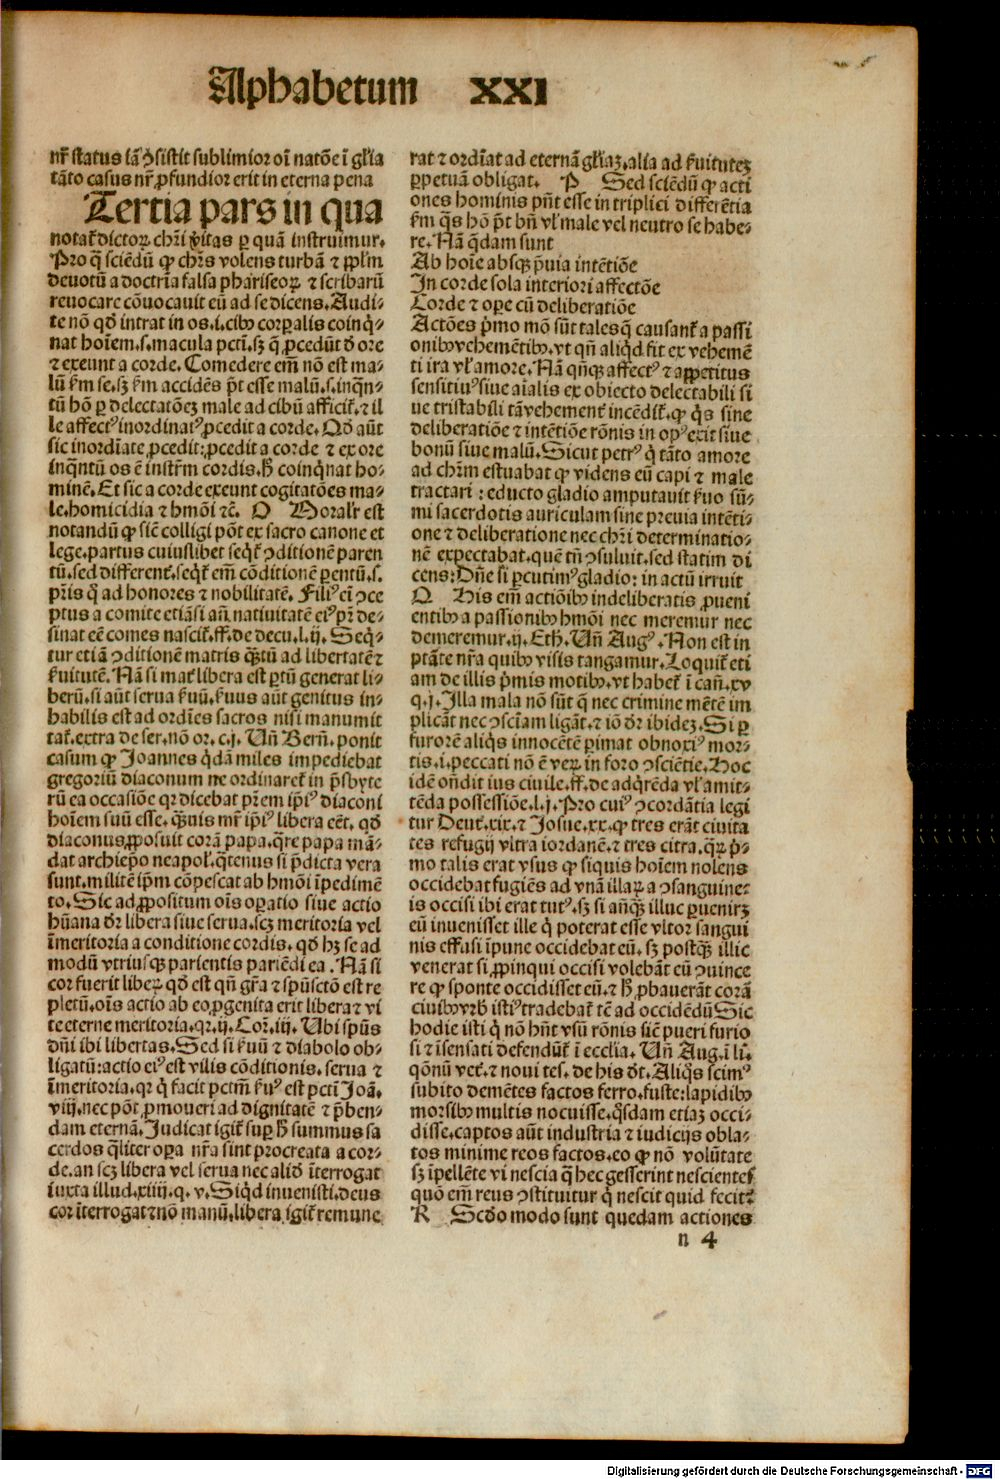 Alphabetum XXI
nr̄ status iā ↄ̄sistit sublimior oī natōe ī gl̄ia
tāto casus nr̄ ꝓfundior erit in eterna pena
Tertia pars in qua
notat᷑ dictoꝝ chr̄i v̓itas ꝑ quā instruimur.
Pro q̄ sciēdū ꝙ chr̄s volens turbā ⁊ ppl̄m
deuotū a doctrīa falsa phariseoꝝ ⁊ scribarū
reuocare cōuocauit eū ad se dicens. Audi⸗
te nō qd̄ intrat in os .i. cibꝰ corꝑalis coinq̓⸗
nat hoīem .s. macula pctī. sꝫ q̄ ꝓcedūt d̄ ore
⁊ exeunt a corde. Comedere em̄ nō est ma⸗
lū km̄ se. sꝫ km̄ accidēs pt̄ esse malū. s. inqn̄⸗
tū hō ꝑ delectatōeꝫ male ad cibū afficit᷑. ⁊ il
le affectꝰ inordinatꝰ ꝓcedit a corde. Qd̄ aūt
sic inordīate ꝓcedit: ꝓcedit a corde ⁊ ex ore
inqn̄tū os ē instr̄m cordis. h̄ coinq̓nat ho⸗
minē. Et sic a corde exeunt cogitatōes ma⸗
le. homicidia ⁊ hmōi ⁊c̄. O Moralr̄ est
notandū ꝙ sic̄ colligi pōt ex sacro canone et
lege. partus cuiuslibet seqt᷑ ↄditionē paren
tū. sed different᷑. seqt᷑ em̄ cōditionē ꝑentū .s.
pr̄is q̄ ad honores ⁊ nobilitatē. Filiꝰ ei ↄce
ptus a comite etiāsi an̄ natiuitatē eiꝰ pr̄ de⸗
sinat eē comes nascit᷑. ff. de decu. l. ij. Seq̓⸗
tur etiā ↄditionē matris q̄tū ad libertatē ⁊
ẜuitutē. Nā si mat᷑ libera est ꝑtū generat li⸗
berū. si aūt serua ẜuū. ẜuus aūt genitus in⸗
habilis est ad ordīes sacros nisi manumit
tat᷑. extra de ser. nō or. c. j. Un̄ Bern̄. ponit
casum ꝙ Joannes q̓dā miles impediebat
gregoriū diaconum ne ordinaret᷑ in pr̄sbyte
rū ea occasiōe qr dicebat pr̄em ip̄iꝰ diaconi
hoīem suū esse. q̄uis mr̄ ip̄iꝰ libera eēt. qd̄
diaconus ꝓposuit corā papa. q̄re papa mā⸗
dat archiep̄o neapol. q̄tenus si p̄dicta vera
sunt. militē ip̄m cōpescat ab hmōi īpedimē
to. Sic ad ꝓpositum oīs oꝑatio siue actio
hūana dr̄ libera siue serua. scꝫ meritoria vel
īmeritoria a conditione cordis. qd̄ hꝫ se ad
modū vtriusqꝫ parientis pariēdi ea. Nā si
cor fuerit liberꝝ qd̄ est qn̄ gr̄a ⁊ spūsctō est re
pletū. oīs actio ab eo ꝓgenita erit libera ⁊ vi
te eterne meritoria. qr. ij. Cor. iij. Ubi spūs
dn̄i ibi libertas. Sed si ẜuū ⁊ diabolo ob⸗
ligatū: actio eiꝰ est vilis cōditionis. serua ⁊
īmeritoria. qr q̓ facit pctm̄ ẜuꝰ est pctī Joā.
viij. nec pōt ꝓmoueri ad dignitatē ⁊ p̄ben⸗
dam eternā. Judicat igit᷑ suꝑ h̄ summus sa
cerdos q̄liter oꝑa nr̄a sint procreata a cor⸗
de. an scꝫ libera vel serua nec aliō īterrogat
iuxta illud. xiiij. q. v. Siqd̄ inuenisti. deus
cor īterrogat ⁊ nō manū. libera igit᷑ remune
rat ⁊ ordīat ad eternā gl̄iaꝫ. alia ad ẜuituteꝫ
ꝑpetuā obligat. P Sed sciēdū ꝙ acti
ones hominis pn̄t esse in triplici differētia
km̄ q̄s hō pt̄ bn̄ vl̄ male vel neutro se habe⸗
re. Nā q̄dam sunt
Ab hoīe absqꝫ p̄uia intētiōe
In corde sola interiori affectōe
Corde ⁊ oꝑe cū deliberatiōe
Actōes p̄mo mō sūt tales q̄ causant᷑ a passi
onibꝰ vehemētibꝰ. vt qn̄ aliq̓d fit ex vehemē
ti ira vl̄ amore. Nā qn̄qꝫ affectꝰ ⁊ appetitus
sensitiuꝰ siue aīalis ex obiecto delectabili si
ue tristabili tā vehement᷑ incēdit᷑. ꝙ q̓s sine
deliberatiōe ⁊ intētiōe rōnis in opꝰ exit siue
bonū siue malū. Sicut petrꝰ q̓ tāto amore
ad chr̄m estuabat ꝙ videns eū capi ⁊ male
tractari : educto gladio amputauit ẜuo sū⸗
mi sacerdotis auriculam sine preuia intēti⸗
one ⁊ deliberatione nec chr̄i determinatio⸗
nē expectabat. quē tn̄ ↄsuluit. sed statim di
cens: Dn̄e si ꝑcutimꝰ gladio: in actū irruit
Q His em̄ actiōibꝰ indeliberatis ꝓueni
entibꝰ a passionibꝰ hmōi nec meremur nec
demeremur. ij. Eth. Un̄ Augꝰ. Non est in
ptāte nr̄a quibꝰ visis tangamur. Loquit᷑ eti
am de illis p̄mis motibꝰ. vt habet᷑ ī can̄. xv
q. j. Illa mala nō sūt q̄ nec crimine mētē im
plicāt nec ↄsciām ligāt. ⁊ iō dr̄ ibideꝫ. Si ꝑ
furorē aliq̓s innocētē ꝑimat obnoxiꝰ mor⸗
tis .i. peccati nō ē veꝝ in foro ↄsciētie. Hoc
idē on̄dit ius ciuile. ff. de adq̓rēda vl̄ amit⸗
tēda possessiōe. l. j. Pro cuiꝰ ↄcordātia legi
tur Deut. xix. ⁊ Josue. xx. ꝙ tres erāt ciuita
tes refugij vltra iordanē. ⁊ tres citra. q̄ꝝ p̄⸗
mo talis erat vsus ꝙ siquis hoīem nolens
occidebat fugiēs ad vnā illaꝝ a ↄsanguine⸗
is occisi ibi erat tutꝰ. sꝫ si anq̄ illuc ꝑuenirꝫ
eū inuenisset ille q̓ poterat esse vltor sangui
nis effusi īpune occidebat eū. sꝫ postq̄ illic
venerat si ꝓpinqui occisi volebāt eū ↄuince
re ꝙ sponte occidisset eū. ⁊ h̄ ꝓbauerāt corā
ciuibꝰ vrb̄ istiꝰ tradebat᷑ tē ad occidēdū Sic
hodie isti q̓ nō hn̄t vsū rōnis sic̄ pueri furio
si ⁊ īsensati defendūt᷑ ī ecclīa. Un̄ Aug. ī li.
qōnū vet᷑. ⁊ noui tes. de his dt̄. Aliq̓s scimꝰ
subito demētes factos ferro. fuste: lapidibꝰ
morsibꝰ multis nocuisse. q̓sdam etiaꝫ occi⸗
disse. captos aūt industria ⁊ iudicijs obla⸗
tos minime reos factos. eo ꝙ nō volūtate
sꝫ īpellēte vi nescia q̄ hec gesserint nescientes
quō em̄ reus ↄstituitur q̓ nescit quid fecit?
R Scd̄o modo sunt quedam actiones
n 4
Digitalisierung gefördert durch die Deutsche Forschungsgemeinschaft - DFG